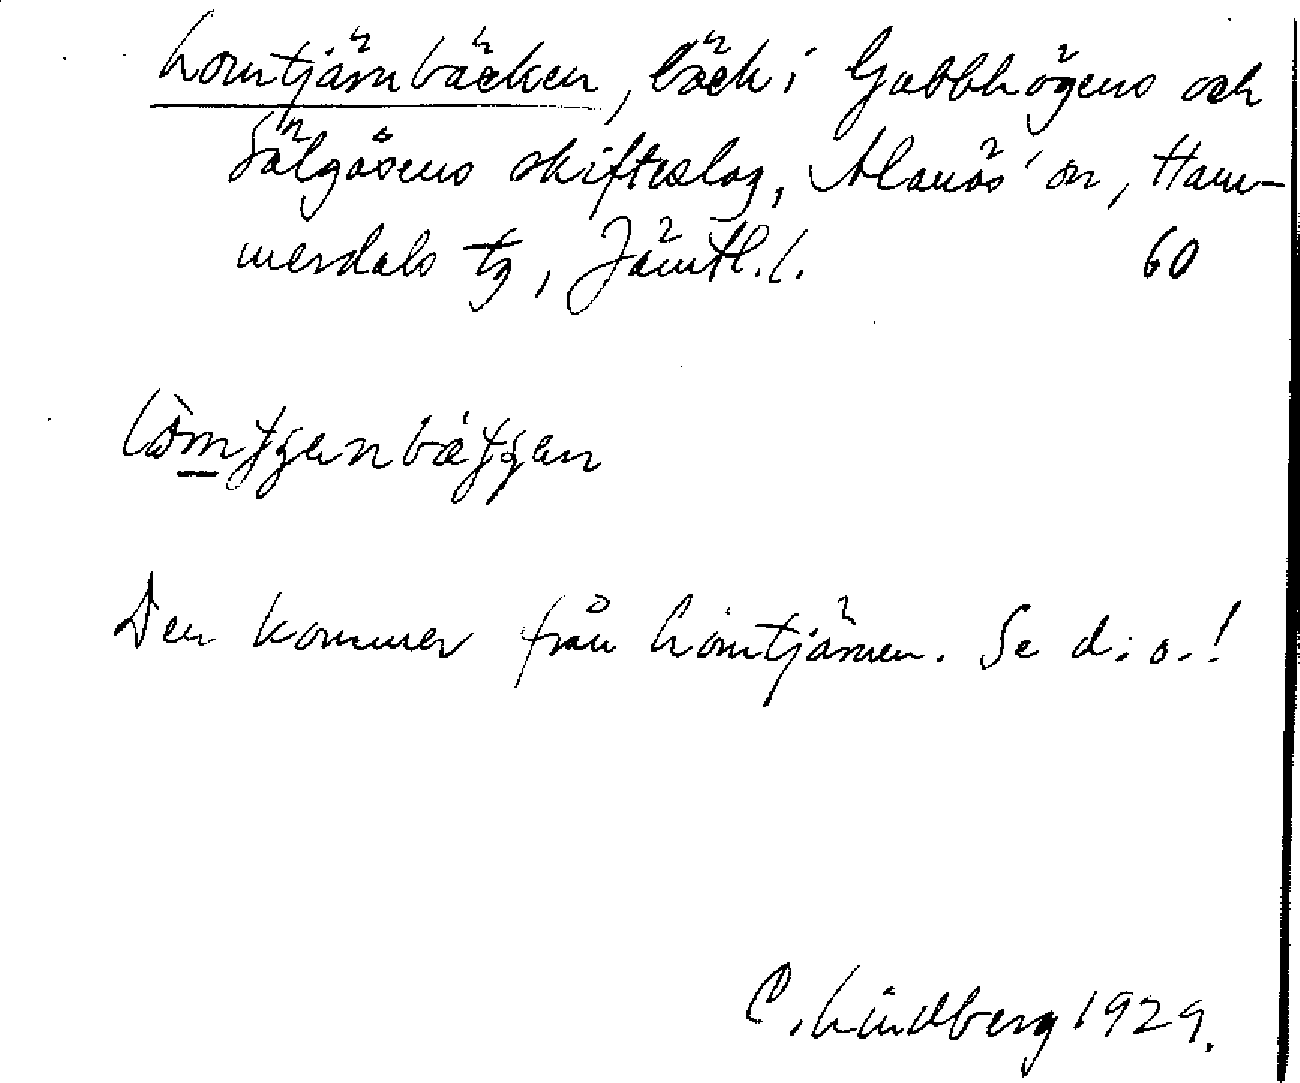 Lomtjärnbäcken, bäck i Gubbhögens och
Sälgåsens skifteslag, Alanäs sn, Ham-
merdals tg, Jämtl. l. 60
Den kommer från Lomtjärnen. Se d. o.!
C. Lindberg 1929.